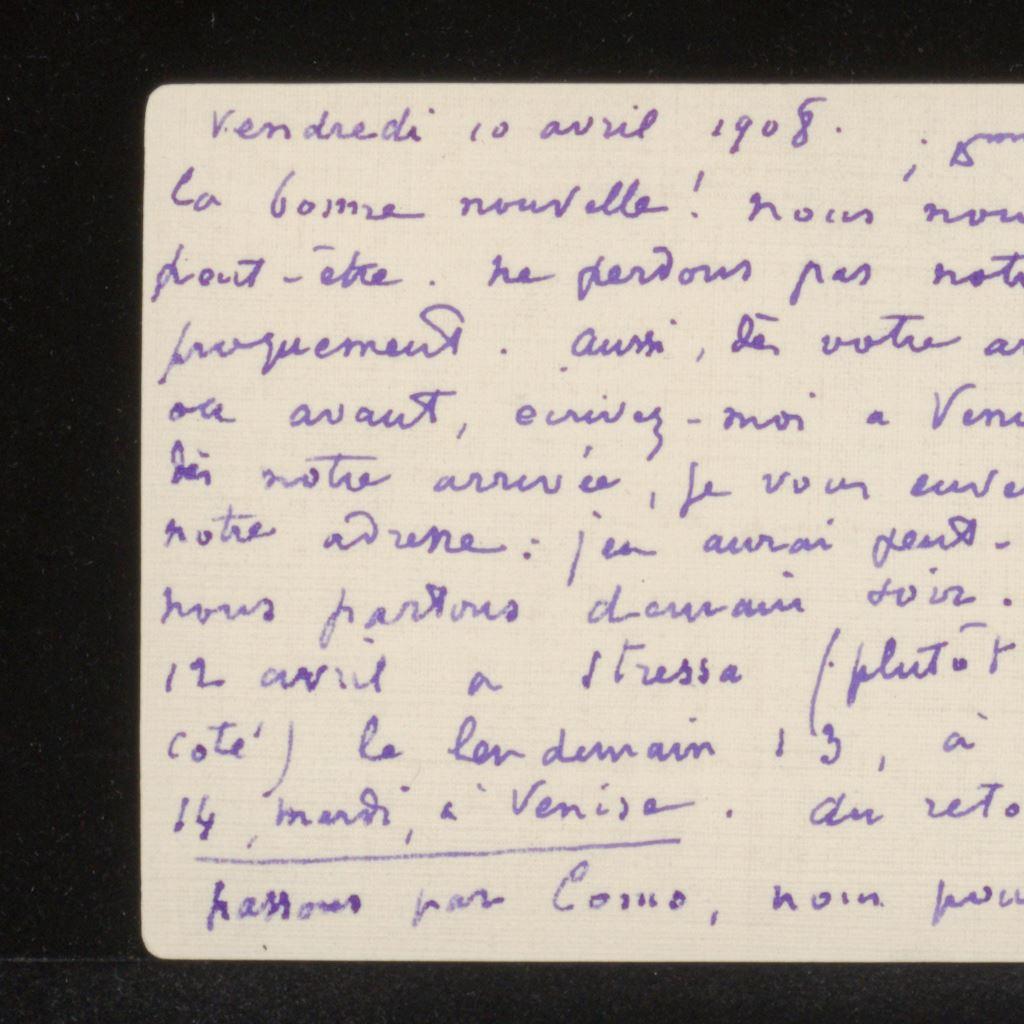 Vendredi 10 avril 1908.
La bonne nouvelle! nous nou
peut-être. Ne perdons pas notr
proquement. Aussi, dès votre ar
ou avant, écrivez-moi a Veni
dès notre arrivée, je vous enve
notre adresse: j'en aurai peut-
nous partons demain soir.
12 avril a Stressa (plutôt
coté) le lendemain 13, à
14, mardi, à Venise. Au reto
passons par Como, nous pou